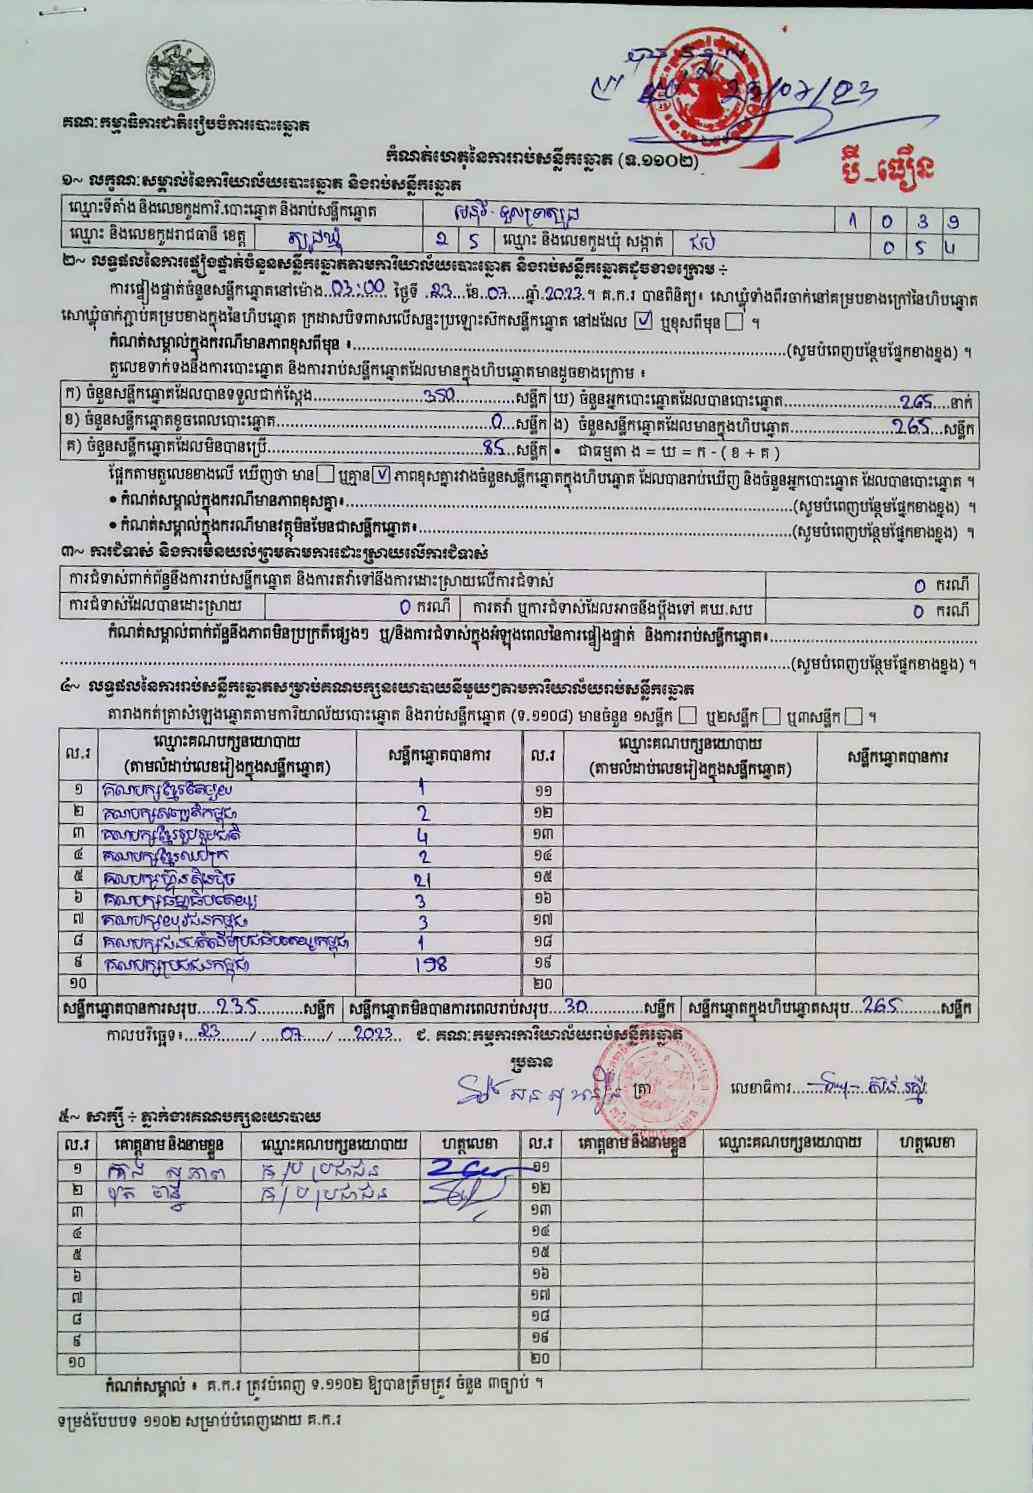 25/07/23
គណៈកម្មាធិការជាតិរៀបចំការបោះឆ្នោត
កំណត់ហេតុនៃការរាប់សន្លឹកឆ្នោត (ទ.១១០២)
ប៊ី_ធឿន
១~ លក្ខណៈសម្គាល់នៃការិយាល័យបោះឆ្នោត និងរាប់សន្លឹកឆ្នោត
ឈ្មោះទីតាំង និងលេខកូដការិ.បោះឆ្នោត និងរាប់សន្លឹកឆ្នោត 1 0 3 9
ឈ្មោះ និងលេខកូដរាជធានី ខេត្ត ត្បូងឃ្មុំ 2 5 ឈ្មោះ និងលេខកូដឃុំ សង្កាត់ ជប់ 0 5 4
២~ លទ្ធផលនៃការផ្ទៀងផ្ទាត់ចំនួនសន្លឹកឆ្នោតតាមការិយាល័យបោះឆ្នោត និងរាប់សន្លឹកឆ្នោតដូចខាងក្រោម ÷
ការផ្ទៀងផ្ទាត់ចំនួនសន្លឹកឆ្នោតនៅម៉ោង 03:00 ថ្ងៃទី 23 ខែ 07 ឆ្នាំ 2023 ។ គ.ក.រ បានពិនិត្យ៖ សោឃ្លុំទាំងពីរចាក់នៅគម្របខាងក្រៅនៃហិបឆ្នោត
សោឃ្លុំចាក់ភ្ជាប់គម្របខាងក្នុងនៃហិបឆ្នោត ក្រដាសបិទពាសលើសន្ទះប្រឡោះស៊កសន្លឹកឆ្នោត នៅដដែល ☑ ឬខុសពីមុន ☐ ។
កំណត់សម្គាល់ក្នុងករណីមានភាពខុសពីមុន ៖ (សូមបំពេញបន្ថែមផ្នែកខាងខ្នង) ។
តួលេខទាក់ទងនឹងការបោះឆ្នោត និងការរាប់សន្លឹកឆ្នោតដែលមានក្នុងហិបឆ្នោតមានដូចខាងក្រោម ៖
ក) ចំនួនសន្លឹកឆ្នោតដែលបានទទួលជាក់ស្តែង 350 សន្លឹក ឃ) ចំនួនអ្នកបោះឆ្នោតដែលបានបោះឆ្នោត 265 នាក់
ខ) ចំនួនសន្លឹកឆ្នោតខូចពេលបោះឆ្នោត 0 សន្លឹក ង) ចំនួនសន្លឹកឆ្នោតដែលមានក្នុងហិបឆ្នោត 265 សន្លឹក
គ) ចំនួនសន្លឹកឆ្នោតដែលមិនបានប្រើ 85 សន្លឹក • ជាធម្មតា ង = ឃ = ក - ( ខ + គ )
ផ្អែកតាមតួលេខខាងលើ ឃើញថា មាន ☐ ឬគ្មាន ☑ ភាពខុសគ្នារវាងចំនួនសន្លឹកឆ្នោតក្នុងហិបឆ្នោត ដែលបានរាប់ឃើញ និងចំនួនអ្នកបោះឆ្នោត ដែលបានបោះឆ្នោត ។
• កំណត់សម្គាល់ក្នុងករណីមានភាពខុសគ្នា៖ (សូមបំពេញបន្ថែមផ្នែកខាងខ្នង) ។
• កំណត់សម្គាល់ក្នុងករណីមានវត្ថុមិនមែនជាសន្លឹកឆ្នោត៖ (សូមបំពេញបន្ថែមផ្នែកខាងខ្នង) ។
៣~ ការជំទាស់ និងការមិនយល់ព្រមតាមការដោះស្រាយលើការជំទាស់
ការជំទាស់ពាក់ព័ន្ធនឹងការរាប់សន្លឹកឆ្នោត និងការតវ៉ាទៅនឹងការដោះស្រាយលើការជំទាស់ 0 ករណី
ការជំទាស់ដែលបានដោះស្រាយ 0 ករណី ការតវ៉ា ឬការជំទាស់ដែលអាចនឹងប្តឹងទៅ គឃ.សប 0 ករណី
កំណត់សម្គាល់ពាក់ព័ន្ធនឹងភាពមិនប្រក្រតីផ្សេងៗ ឬ/និងការជំទាស់ក្នុងអំឡុងពេលនៃការផ្ទៀងផ្ទាត់ និងការរាប់សន្លឹកឆ្នោត៖
(សូមបំពេញបន្ថែមផ្នែកខាងខ្នង) ។
៤~ លទ្ធផលនៃការរាប់សន្លឹកឆ្នោតសម្រាប់គណបក្សនយោបាយនីមួយៗតាមការិយាល័យរាប់សន្លឹកឆ្នោត
តារាងកត់ត្រាសំឡេងឆ្នោតតាមការិយាល័យបោះឆ្នោត និងរាប់សន្លឹកឆ្នោត (ទ.១១០៨) មានចំនួន ១សន្លឹក ☐ ឬ២សន្លឹក ☐ ឬ៣សន្លឹក ☐ ។
ល.រ ឈ្មោះគណបក្សនយោបាយ (តាមលំដាប់លេខរៀងក្នុងសន្លឹកឆ្នោត) សន្លឹកឆ្នោតបានការ ល.រ ឈ្មោះគណបក្សនយោបាយ (តាមលំដាប់លេខរៀងក្នុងសន្លឹកឆ្នោត) សន្លឹកឆ្នោតបានការ
១ គណបក្សខ្មែរតែមួយ 1 ១១
២ គណបក្ស 2 ១២
៣ គណបក្សខ្មែររួបរួមជាតិ 4 ១៣
៤ គណបក្សខ្មែរ 2 ១៤
៥ គណបក្សហ្វ៊ុនស៊ិនប៉ិច 21 ១៥
៦ គណបក្សធម្មាធិបតេយ្យ 3 ១៦
៧ គណបក្សយុវជនកម្ពុជា 3 ១៧
៨ គណបក្ស 1 ១៨
៩ គណបក្សប្រជាជនកម្ពុជា 198 ១៩
១០ ២០
សន្លឹកឆ្នោតបានការសរុប 235 សន្លឹក សន្លឹកឆ្នោតមិនបានការពេលរាប់សរុប 30 សន្លឹក សន្លឹកឆ្នោតក្នុងហិបឆ្នោតសរុប 265 សន្លឹក
កាលបរិច្ឆេទ៖ 23 / 07 / 2023 ជ. គណៈកម្មការការិយាល័យរាប់សន្លឹកឆ្នោត
ប្រធាន
ត្រា លេខាធិការ
៥~ សាក្សី ÷ ភ្នាក់ងារគណបក្សនយោបាយ
ល.រ គោត្តនាម និងនាមខ្លួន ឈ្មោះគណបក្សនយោបាយ ហត្ថលេខា ល.រ គោត្តនាម និងនាមខ្លួន ឈ្មោះគណបក្សនយោបាយ ហត្ថលេខា
១ គ/ប ប្រជាជន ១១
២ គ/ប ប្រជាជន ១២
៣ ១៣
៤ ១៤
៥ ១៥
៦ ១៦
៧ ១៧
៨ ១៨
៩ ១៩
១០ ២០
កំណត់សម្គាល់ ៖ គ.ក.រ ត្រូវបំពេញ ទ.១១០២ ឱ្យបានត្រឹមត្រូវ ចំនួន ៣ច្បាប់ ។
ទម្រង់បែបបទ ១១០២ សម្រាប់បំពេញដោយ គ.ក.រ